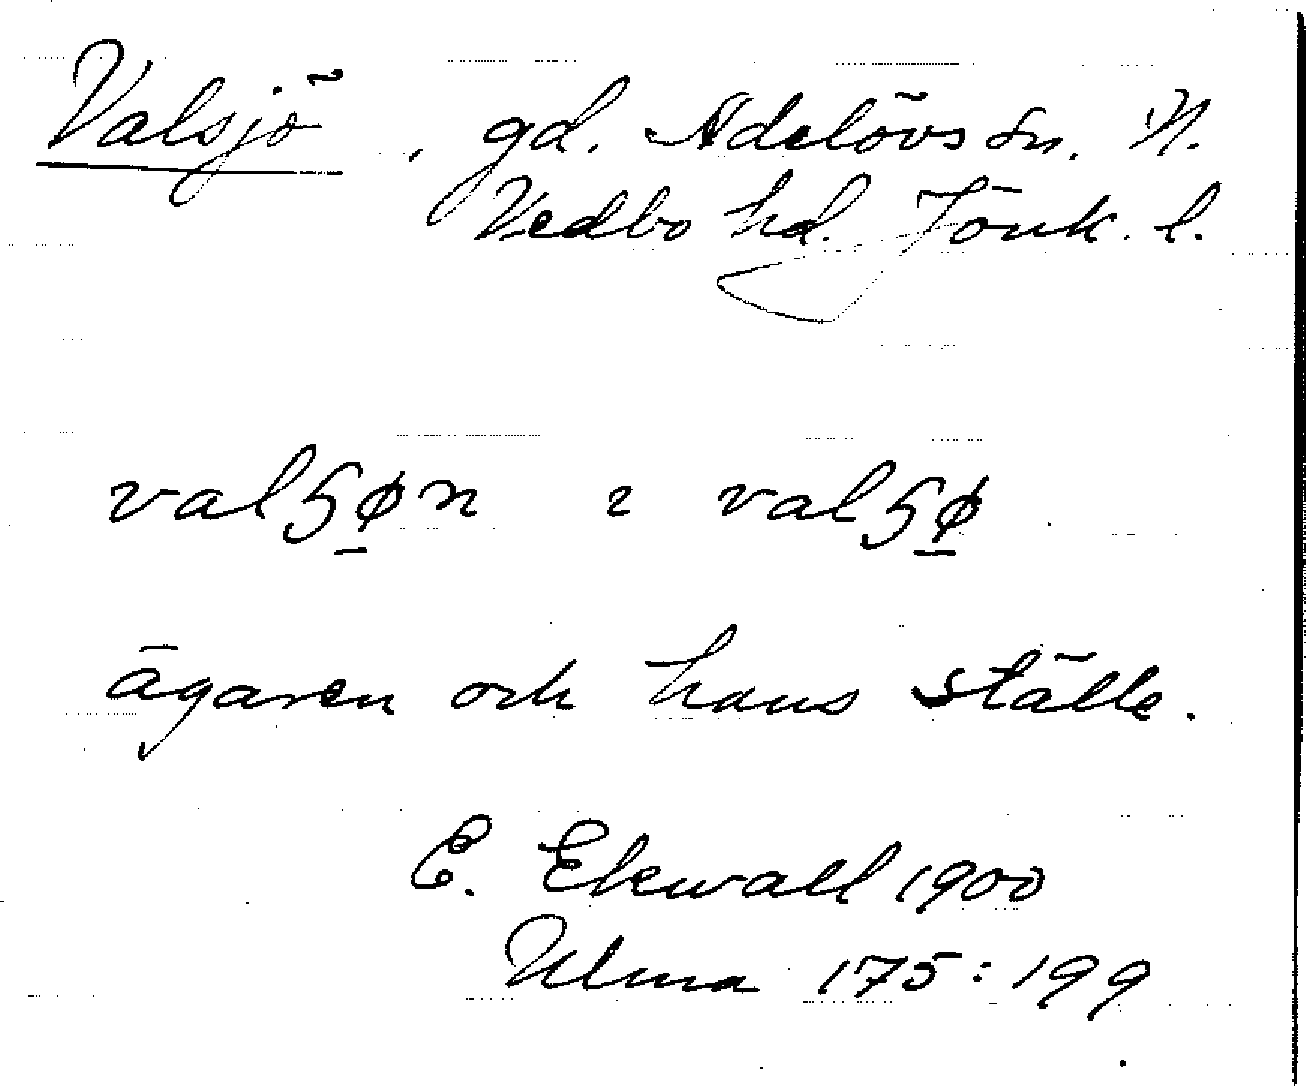 Valsjö, gd. Adelövs sn. N.
Vedbo hd. Jönk. l.
valɧø̲n ɩ valɧø̲
ägaren och hans ställe.
E. Ekwall 1900
Ulma 175:199